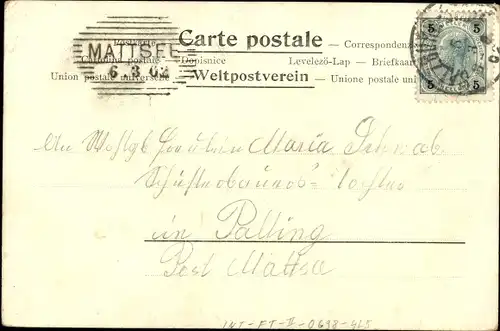 Carte postale
Postkarte Correspondenz
MATTSEE
Cartolina postale Dopisnice Levelező-Lap — Briefkaart
6.3.02
Union postale universelle Weltpostverein — Unione postale uni
5 5
5 5
An Fräulein Maria Schwab
Schusterbauers-Tochter
in Palling
Post Mattsee
INT-FT-II-0698-GL5